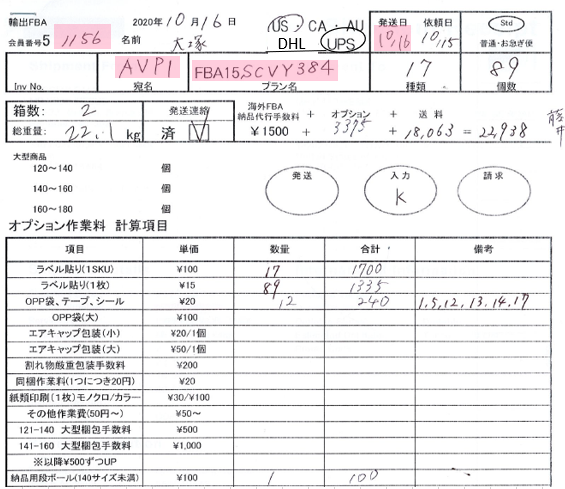 輸出FBA 2020年10月16日 US・CA・AU 発送日 依頼日 Std
会員番号5 1156 名前 大塚 DHL UPS 10/16 10/15 普通・お急ぎ便
AVP1 FBA15SCVY384 17 89
Inv No. 宛名 プラン名 種類 個数
箱数: 2 発送連絡 海外FBA納品代行手数料 + オプション + 送料
総重量: 22.1 kg 済 ☑ ¥1500 + 3375 + 18,063 = 22,938 藤井
大型商品
120～140 個 発送 入力 請求
140～160 個 K
160～180 個
オプション作業料 計算項目
項目 単価 数量 合計 備考
ラベル貼り(1SKU) ¥100 17 1700
ラベル貼り(1枚) ¥15 89 1335
OPP袋、テープ、シール ¥20 12 240 1,5,12,13,14,17
OPP袋(大) ¥100
エアキャップ包装(小) ¥20/1個
エアキャップ包装(大) ¥50/1個
割れ物厳重包装手数料 ¥200
同梱作業料(1つにつき20円) ¥20
紙類印刷(1枚)モノクロ/カラー ¥30/¥100
その他作業費(50円～) ¥50～
121-140 大型梱包手数料 ¥500
141-160 大型梱包手数料 ¥1,000
※以降¥500ずつUP
納品用段ボール(140サイズ未満) ¥100 1 100